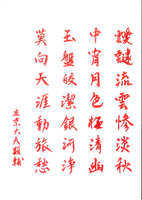 流雲慘淡秋
中宵月色極清幽
玉盤皎潔銀河淨
莫向天涯動旅愁